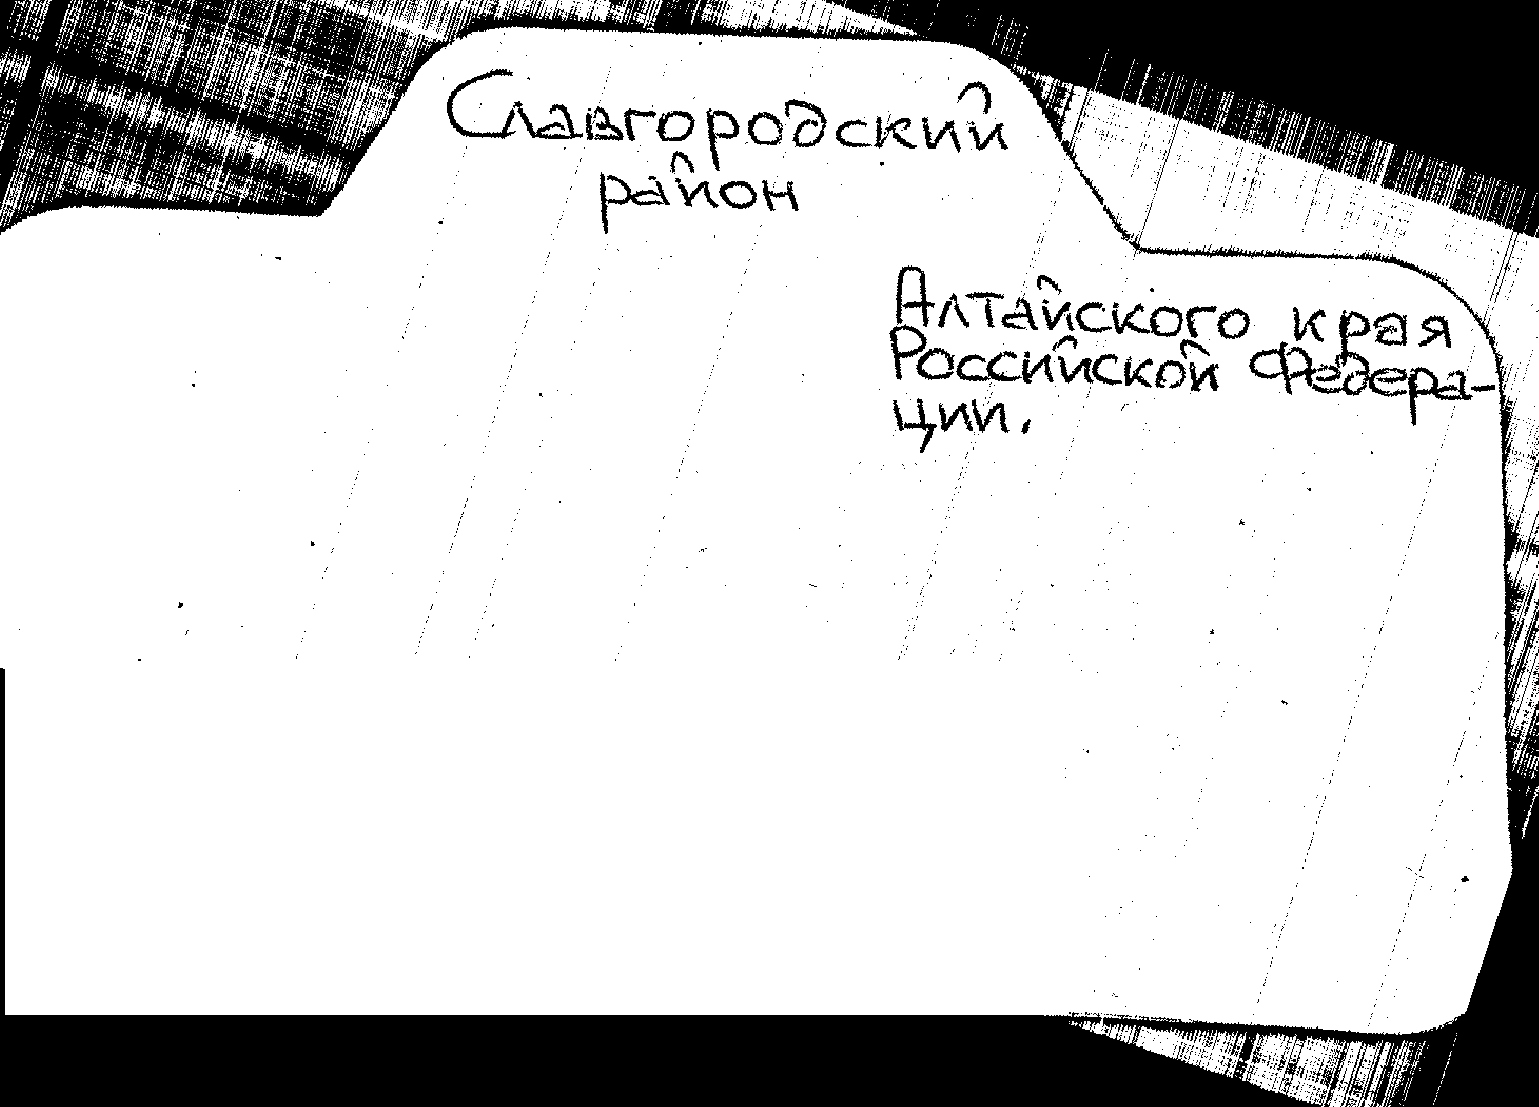 Славгородский
район
Алтайского края
Российской Федера-
ции.